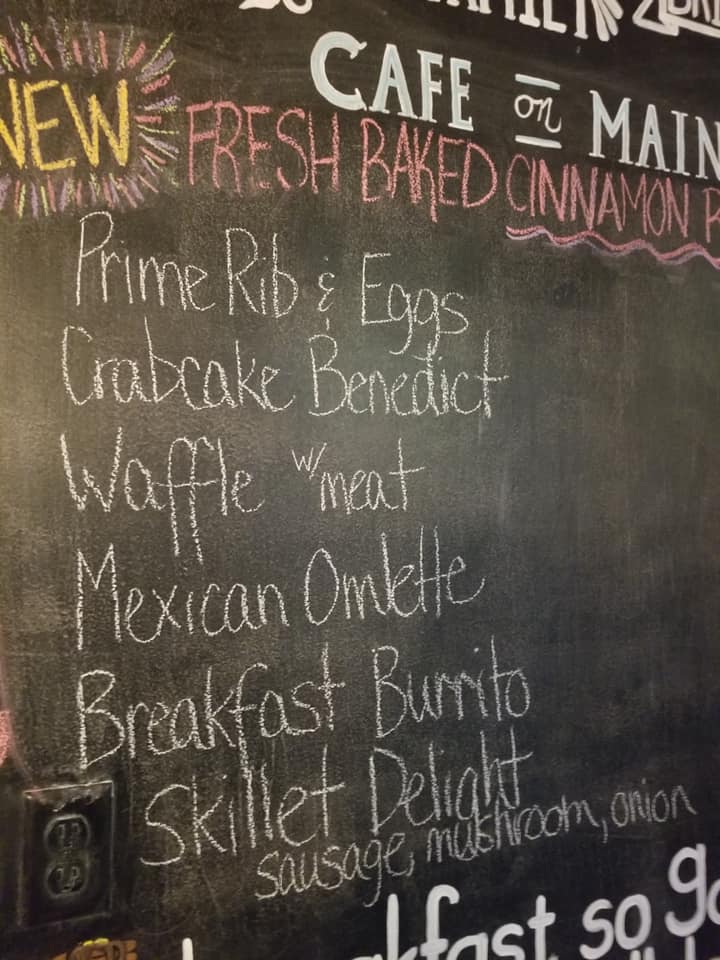 CAFE on MAIN
NEW
FRESH BAKED CINNAMON
Prime Rib & Eggs
Crabcake Benedict
Waffle w/meat
Mexican Omlette
Breakfast Burrito
Skillet Delight
sausage, mushroom, onion
so